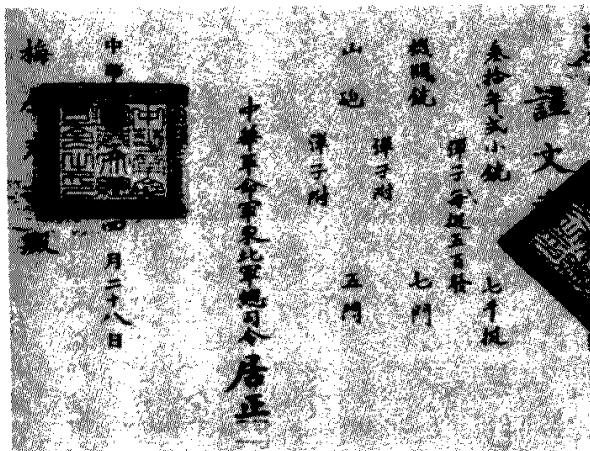 證文
叁拾年式小銃 七千挺
彈子每挺五百發
機關銃 七門
彈子附
山砲 五門
彈子附
中華革命軍東北軍總司令居正
中華 四月二十八日
梅 殿